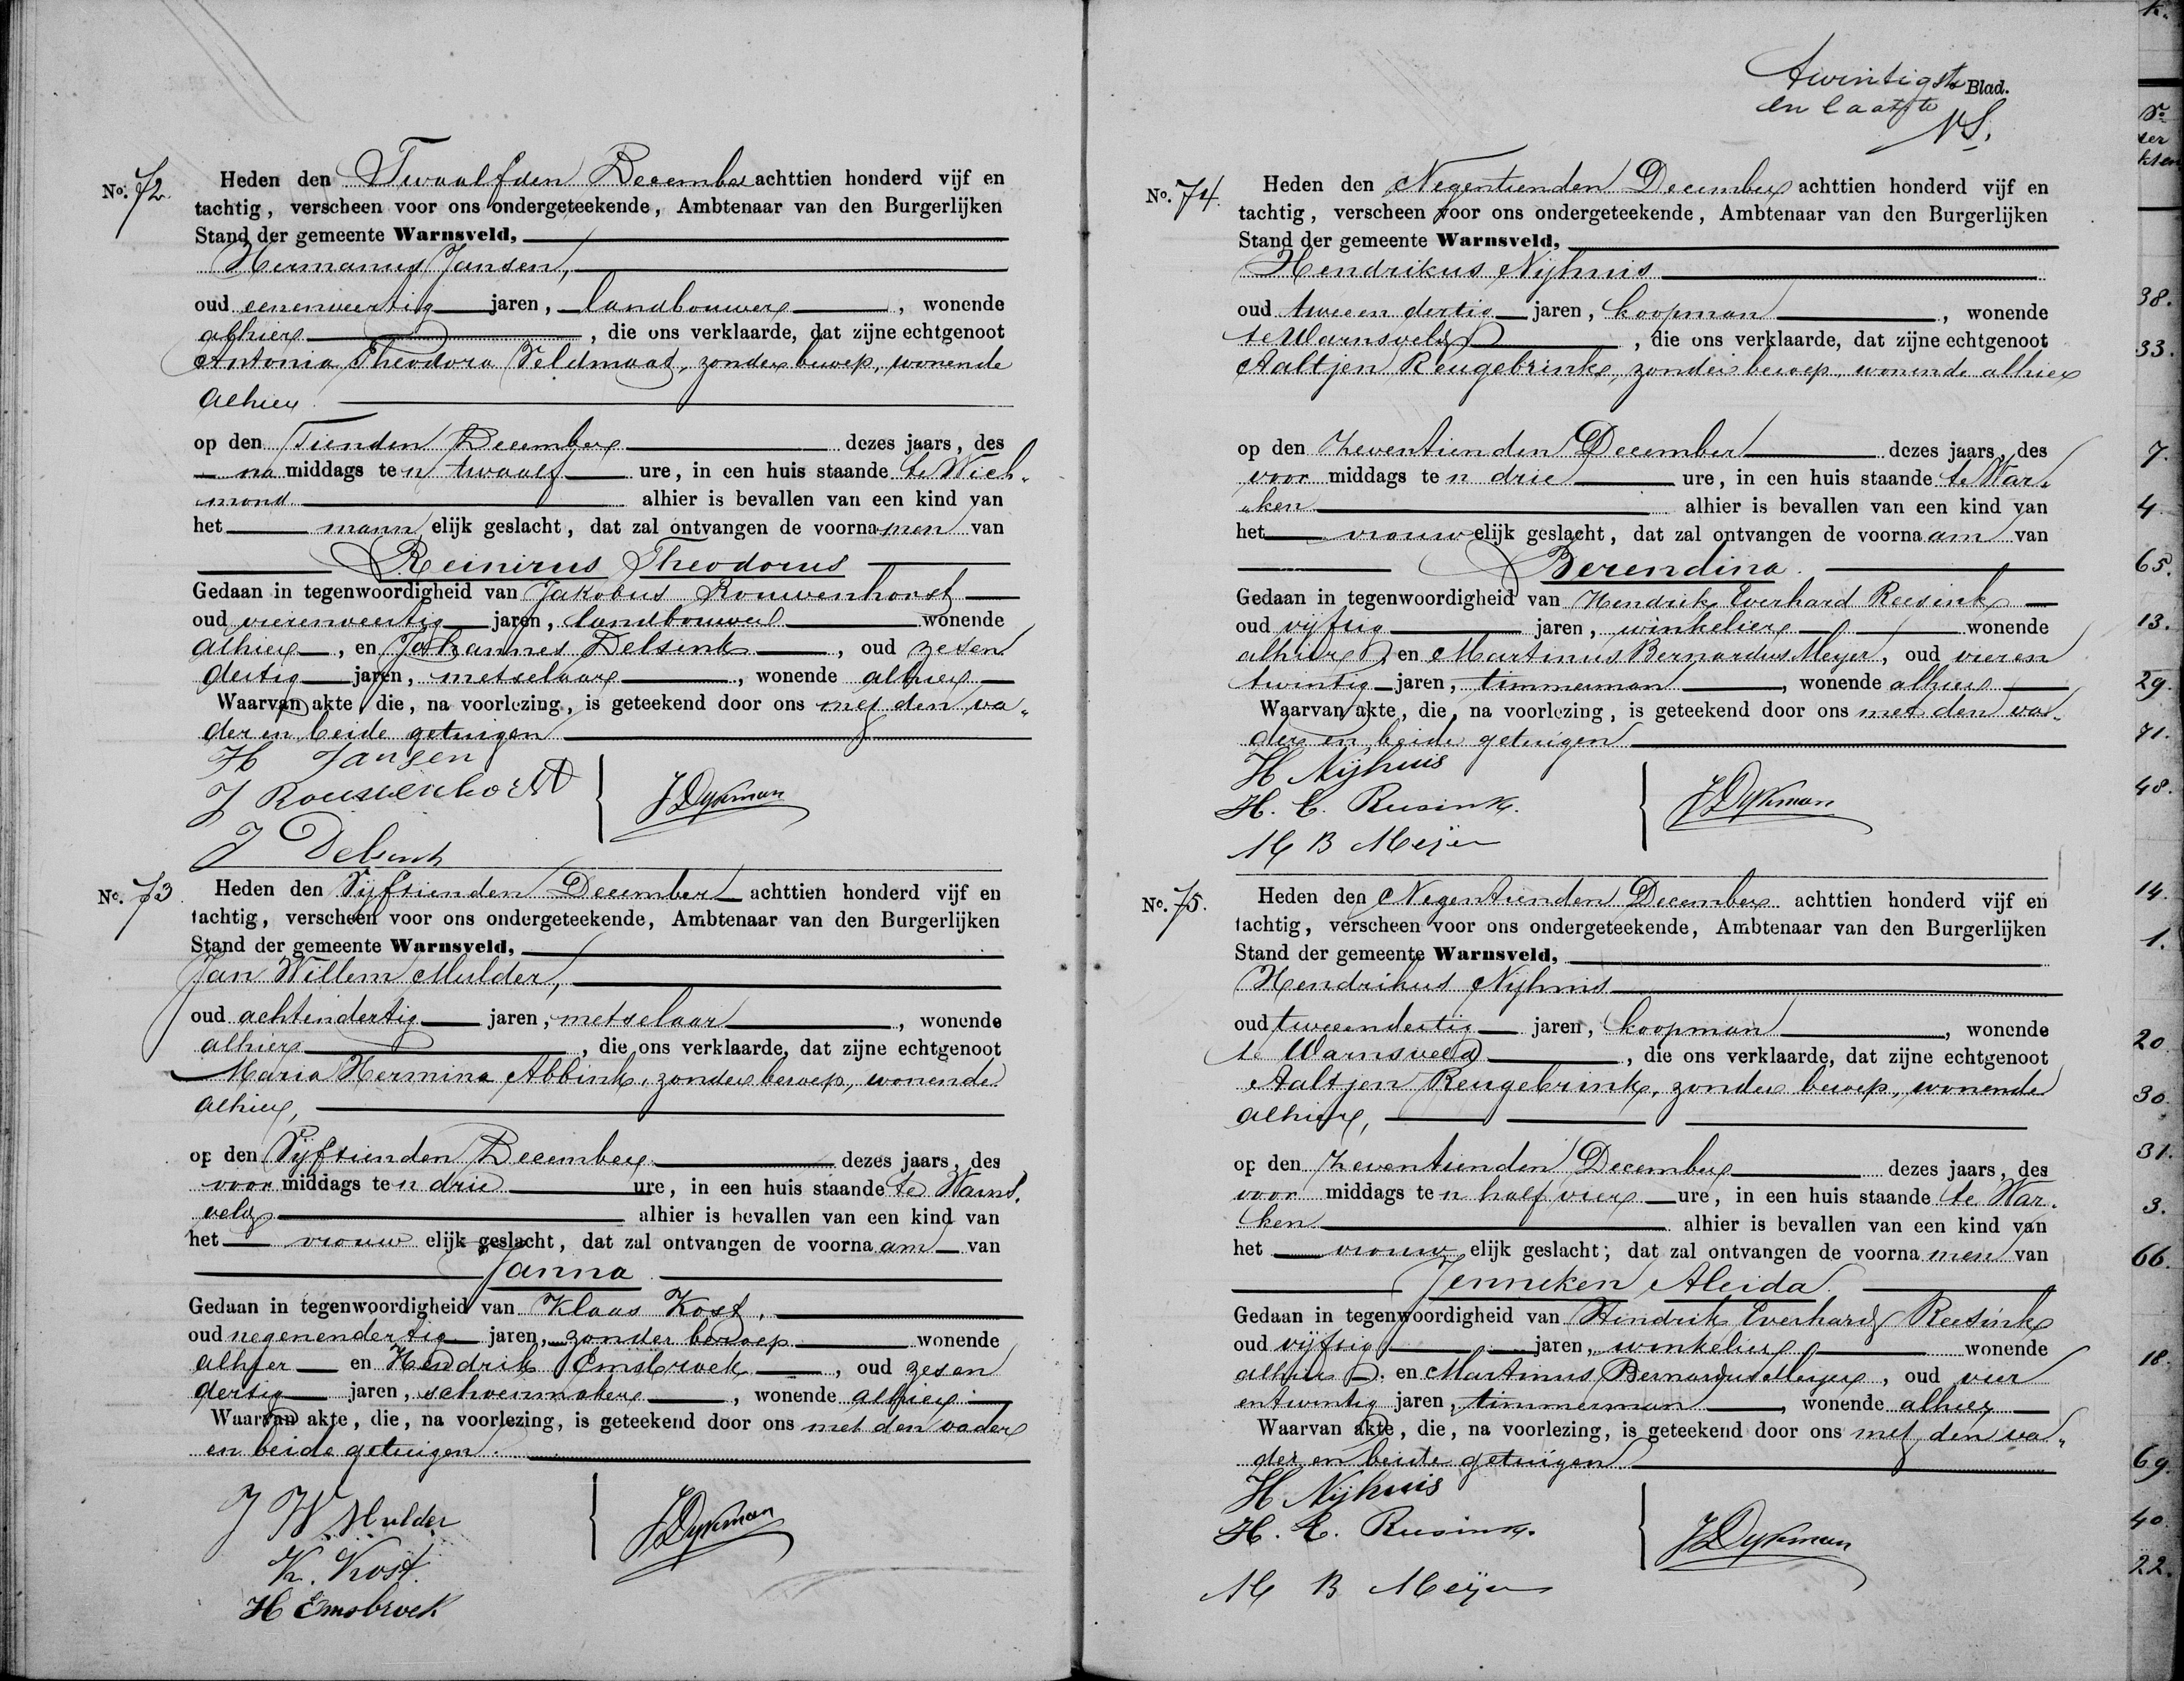 No. 72.
Heden den Twaalfden December achttien honderd vijf en
tachtig, verscheen voor ons ondergeteekende, Ambtenaar van den Burgerlijken
Stand der gemeente Warnsveld,
Hermanus Jansen,
oud eenenveertig jaren, landbouwer, wonende
alhier, die ons verklaarde, dat zijne echtgenoot
Antonia Theodora Veldmaat, zonder beroep, wonende
alhier
op den Tienden December dezes jaars, des
na middags te n twaalf ure, in een huis staande te Wich„
mond alhier is bevallen van een kind van
het mann elijk geslacht, dat zal ontvangen de voornamen van
Reinirus Theodorus
Gedaan in tegenwoordigheid van Jakobus Rouwenhorst
oud vierenveertig jaren, landbouwer wonende
alhier, en Johannes Delsink, oud zesen
dertig jaren, metselaar, wonende alhier
Waarvan akte, die, na voorlezing, is geteekend door ons met den va„
der en beide getuigen
H Jansen
J Rouwenhorst
J Delsink
JDykman
No. 73
Heden den Vijftienden December achttien honderd vijf en
tachtig, verscheen voor ons ondergeteekende, Ambtenaar van den Burgerlijken
Stand der gemeente Warnsveld,
Jan Willem Mulder,
oud achtendertig jaren, metselaar, wonende
alhier, die ons verklaarde, dat zijne echtgenoot
Maria Hermina Abbink, zonder beroep, wonende
alhier,
op den Vijftienden December dezes jaars, des
voor middags te n drie ure, in een huis staande te Warns„
veld alhier is bevallen van een kind van
het vrouw elijk geslacht, dat zal ontvangen de voorna am van
Janna
Gedaan in tegenwoordigheid van Klaas Kost,
oud negenendertig jaren, zonder beroep wonende
alhier en Hendrik Emsbroek, oud zesen
dertig jaren, schoenmaker, wonende alhier
Waarvan akte, die, na voorlezing, is geteekend door ons met den vader
en beide getuigen.
J W Mulder
K. Kost.
H Emsbroek
JDykman
Twintigste Blad.
en laatste
No. 74.
Heden den Negentienden December achttien honderd vijf en
tachtig, verscheen voor ons ondergeteekende, Ambtenaar van den Burgerlijken
Stand der gemeente Warnsveld,
Hendrikus Nijhuis
oud tweeen dertig jaren, koopman, wonende
te Warnsveld, die ons verklaarde, dat zijne echtgenoot
Aaltjen Reugebrink, zonder beroep, wonende alhier
op den Zeventienden December dezes jaars, des
voor middags te n drie ure, in een huis staande te War„
„ken alhier is bevallen van een kind van
het vrouw elijk geslacht, dat zal ontvangen de voorna am van
Berendina.
Gedaan in tegenwoordigheid van Hendrik Everhard Reesink
oud vijftig jaren, winkelier wonende
alhier, en Martinus Bernardus Meyer, oud vieren
twintig jaren, timmerman, wonende alhier
Waarvan akte, die, na voorlezing, is geteekend door ons met den va„
der en beide getuigen
H Nijhuis
H. E. Reesink.
M B Meijer
JDykman
No. 75.
Heden den Negentienden December achttien honderd vijf en
tachtig, verscheen voor ons ondergeteekende, Ambtenaar van den Burgerlijken
Stand der gemeente Warnsveld,
Hendrikus Nijhuis
oud tweeendertig jaren, koopman, wonende
te Warnsveld, die ons verklaarde, dat zijne echtgenoot
Aaltjen Reugebrink, zonder beroep, wonende
alhier,
op den Zeventienden December dezes jaars, des
voor middags te n half vier ure, in een huis staande te War„
ken alhier is bevallen van een kind van
het vrouw elijk geslacht; dat zal ontvangen de voorna men van
Jenneken Aleida.
Gedaan in tegenwoordigheid van Hendrik Everhard Reesink
oud vijftig jaren, winkelier wonende
alhier en Martinus Bernardus Meyer, oud vier
entwintig jaren, timmerman, wonende alhier
Waarvan akte, die, na voorlezing, is geteekend door ons met den va„
der en beide getuigen.
H Nijhuis
H. E. Reesink.
M B Meijer
JDykman
38.
33.
7.
4.
65.
13.
29.
71.
48.
14.
1.
20.
30.
31.
3.
66.
18.
69.
40.
22.